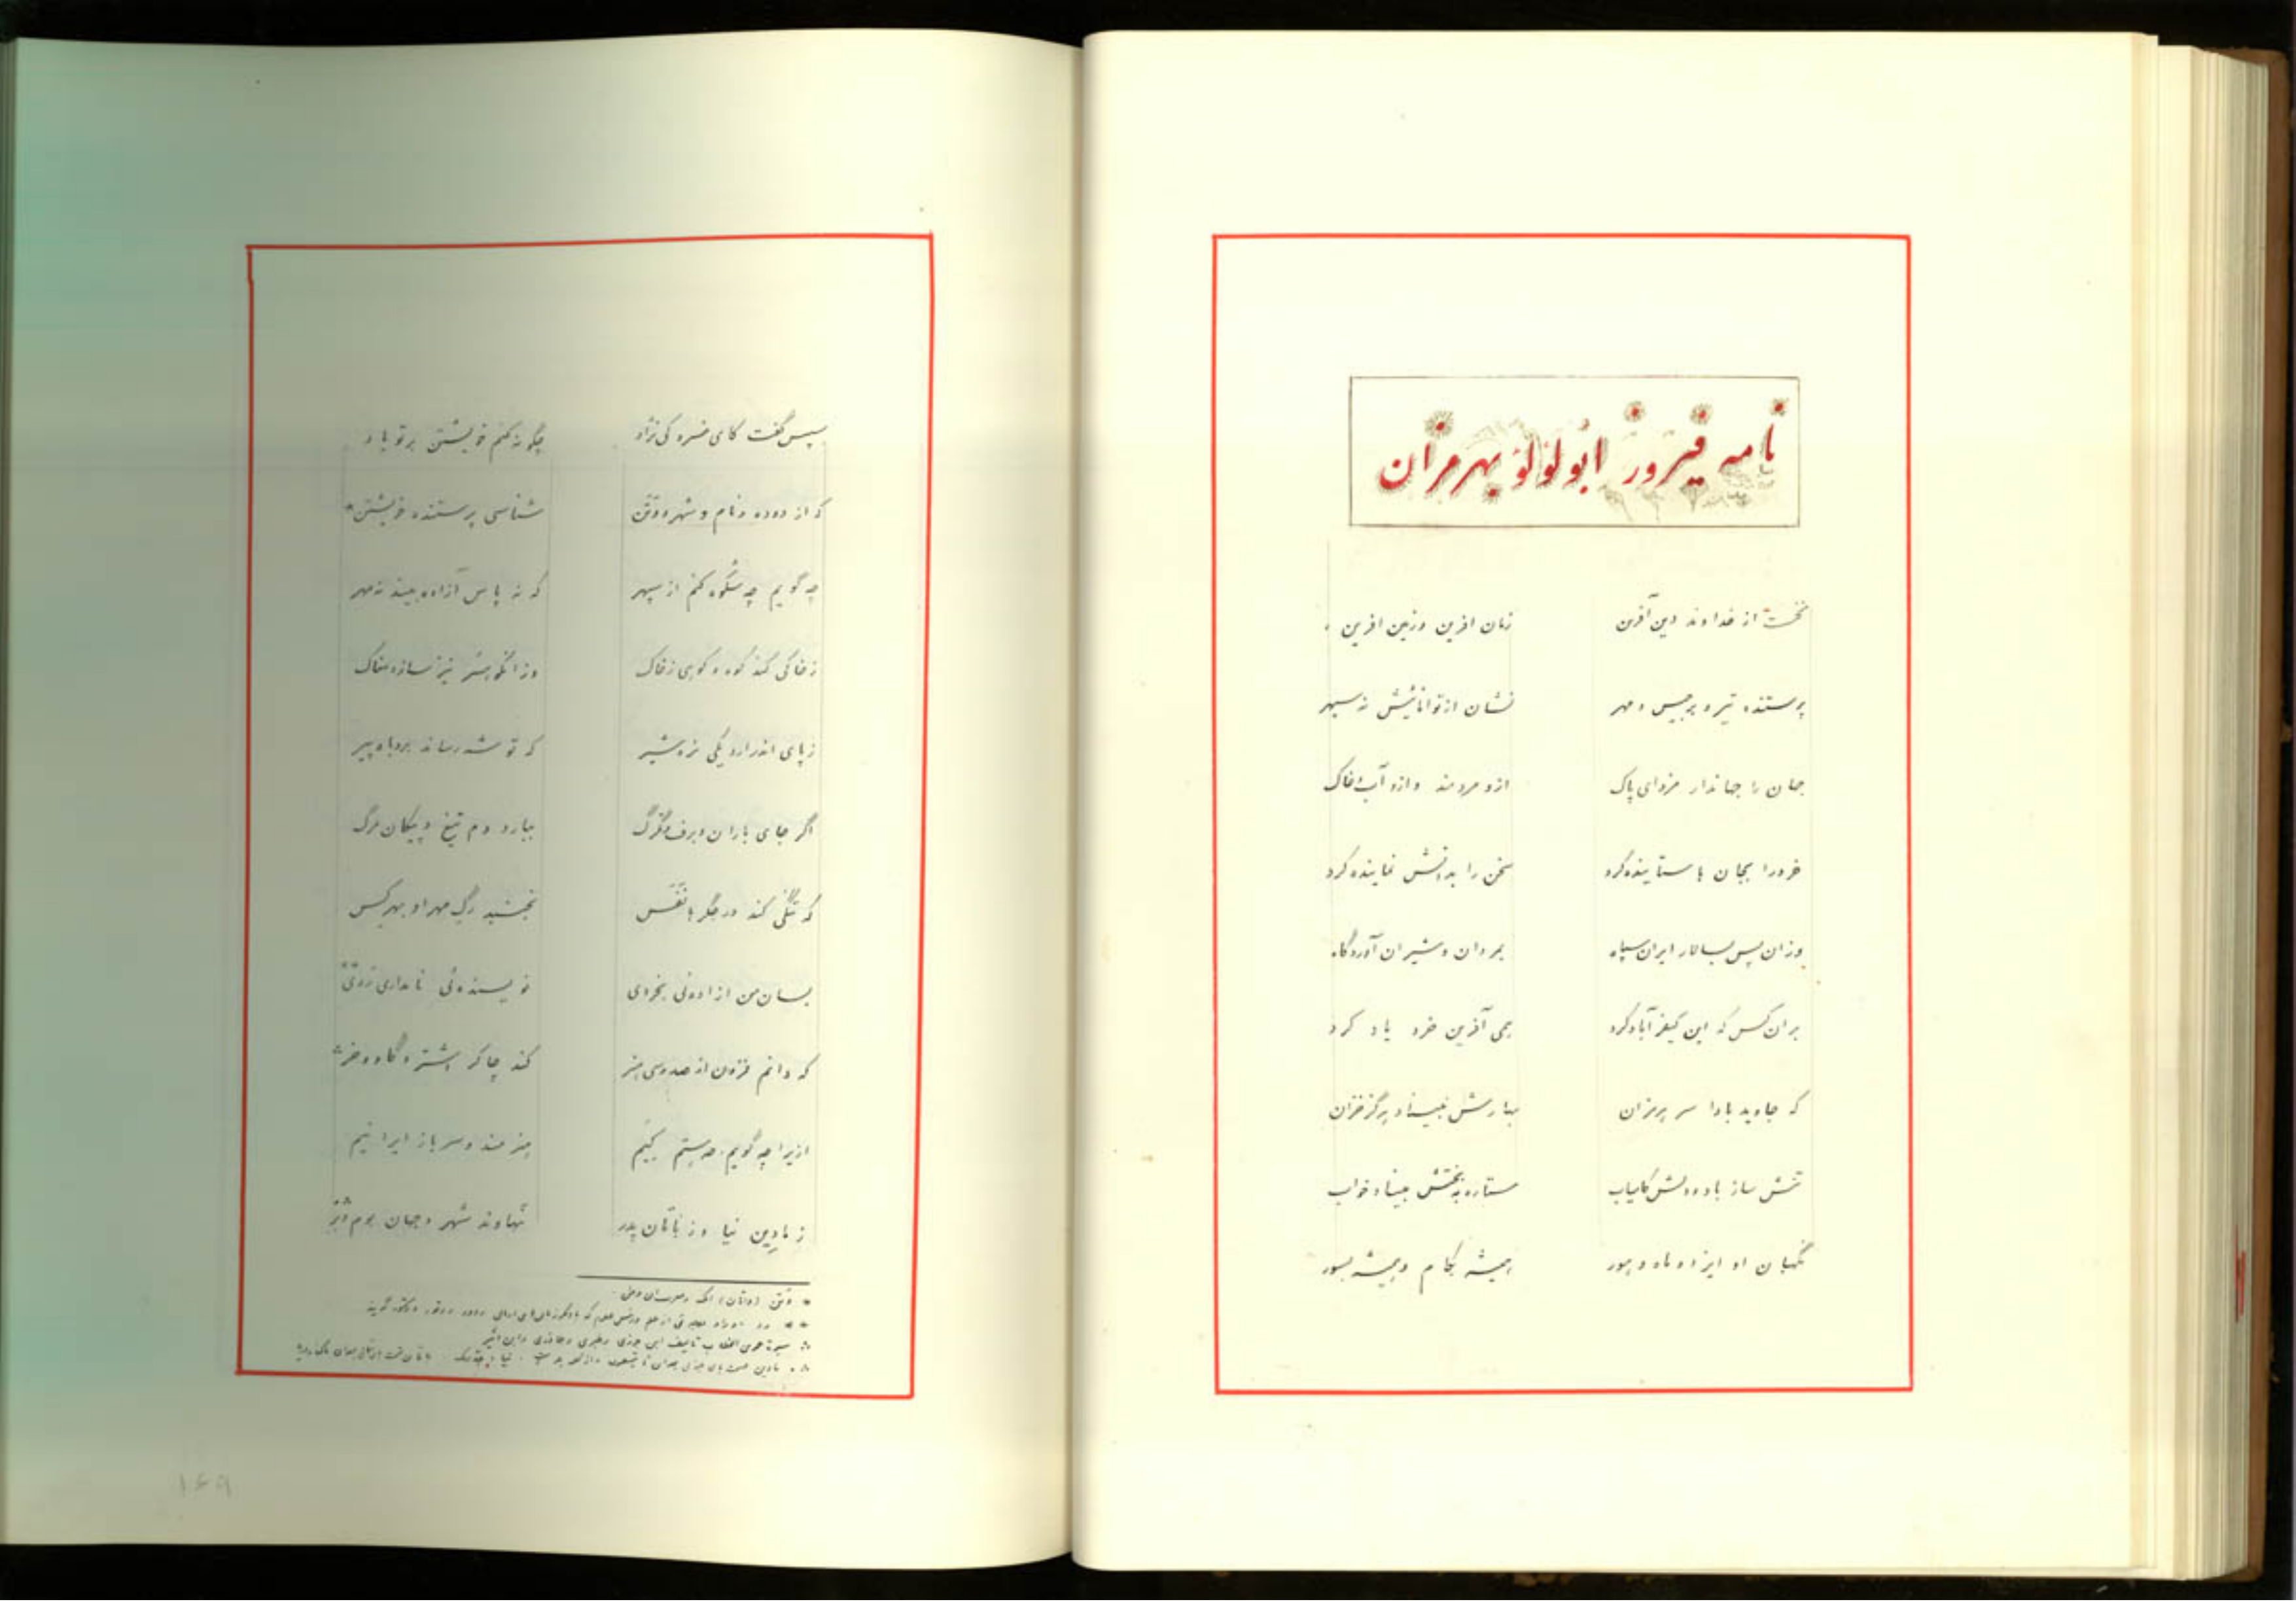 نامه فیروز ابولولو بهرمزان
نخست از خداوند دین آفرین زمان افرین و زمین افرین
پرستنده تیر و برجیس و مهر نشان از توانائیش نه سپهر
جهان را جهاندار مزدای پاک ازو مردمند وازو آب و خاک
خرد را بجان با ستاینده کرد سخن را بدانش نماینده کرد
وزان پس بسالار ایران سپاه بمردان و شیران آوردگاه
بران کس که این کیفر آباد کرد همی آفرین خرد یاد کرد
که جاوید بادا سر هرمزان بهارش نبیناد هرگز خزان
تنش ساز باد و دلش کامیاب ستاره به بختش مبیناد خواب
نگهبان او ایزد ماه و هور همیشه بکام و همیشه بسور
سپس گفت کای خسرو کی نژاد چگونه کنم خویشتن بر تو یاد
که از دوده و نام و شهر و وتن شناسی پرستنده خویشتن*
چه گویم چه شکوه کنم از سپهر که نه پاس آزاده بیند نه مهر
ز خاکی کند کوه و کوهی ز خاک وز انگوهسر نیز سازد مغاک
ز پای اندر ارد یکی نره شیر که توشه رساند بروباه پیر
اگر جای باران و برف و تگرگ ببارد دم تیغ و پیکان مرگ
که تنگی کند در جگر با نفس نجنبد رگ مهر او بهر کس
بسان من از اده ئی بخردی نویسنده ئی نامداری
که دانم فزون از صد و سی هنر کند چاکر اشتر و گاو و خر
ازیرا چه گویم، چه هستم کیم هنرمند و سرباز ایرانیم
ز مادین نیا وز باتان پدر نهاوند شهر و جهان بوم و بر
* وتن (وتان)
سیرة عمرین الخطاب تالیف ابی جوزی و طبری و وابن اثیر
۱۴۹